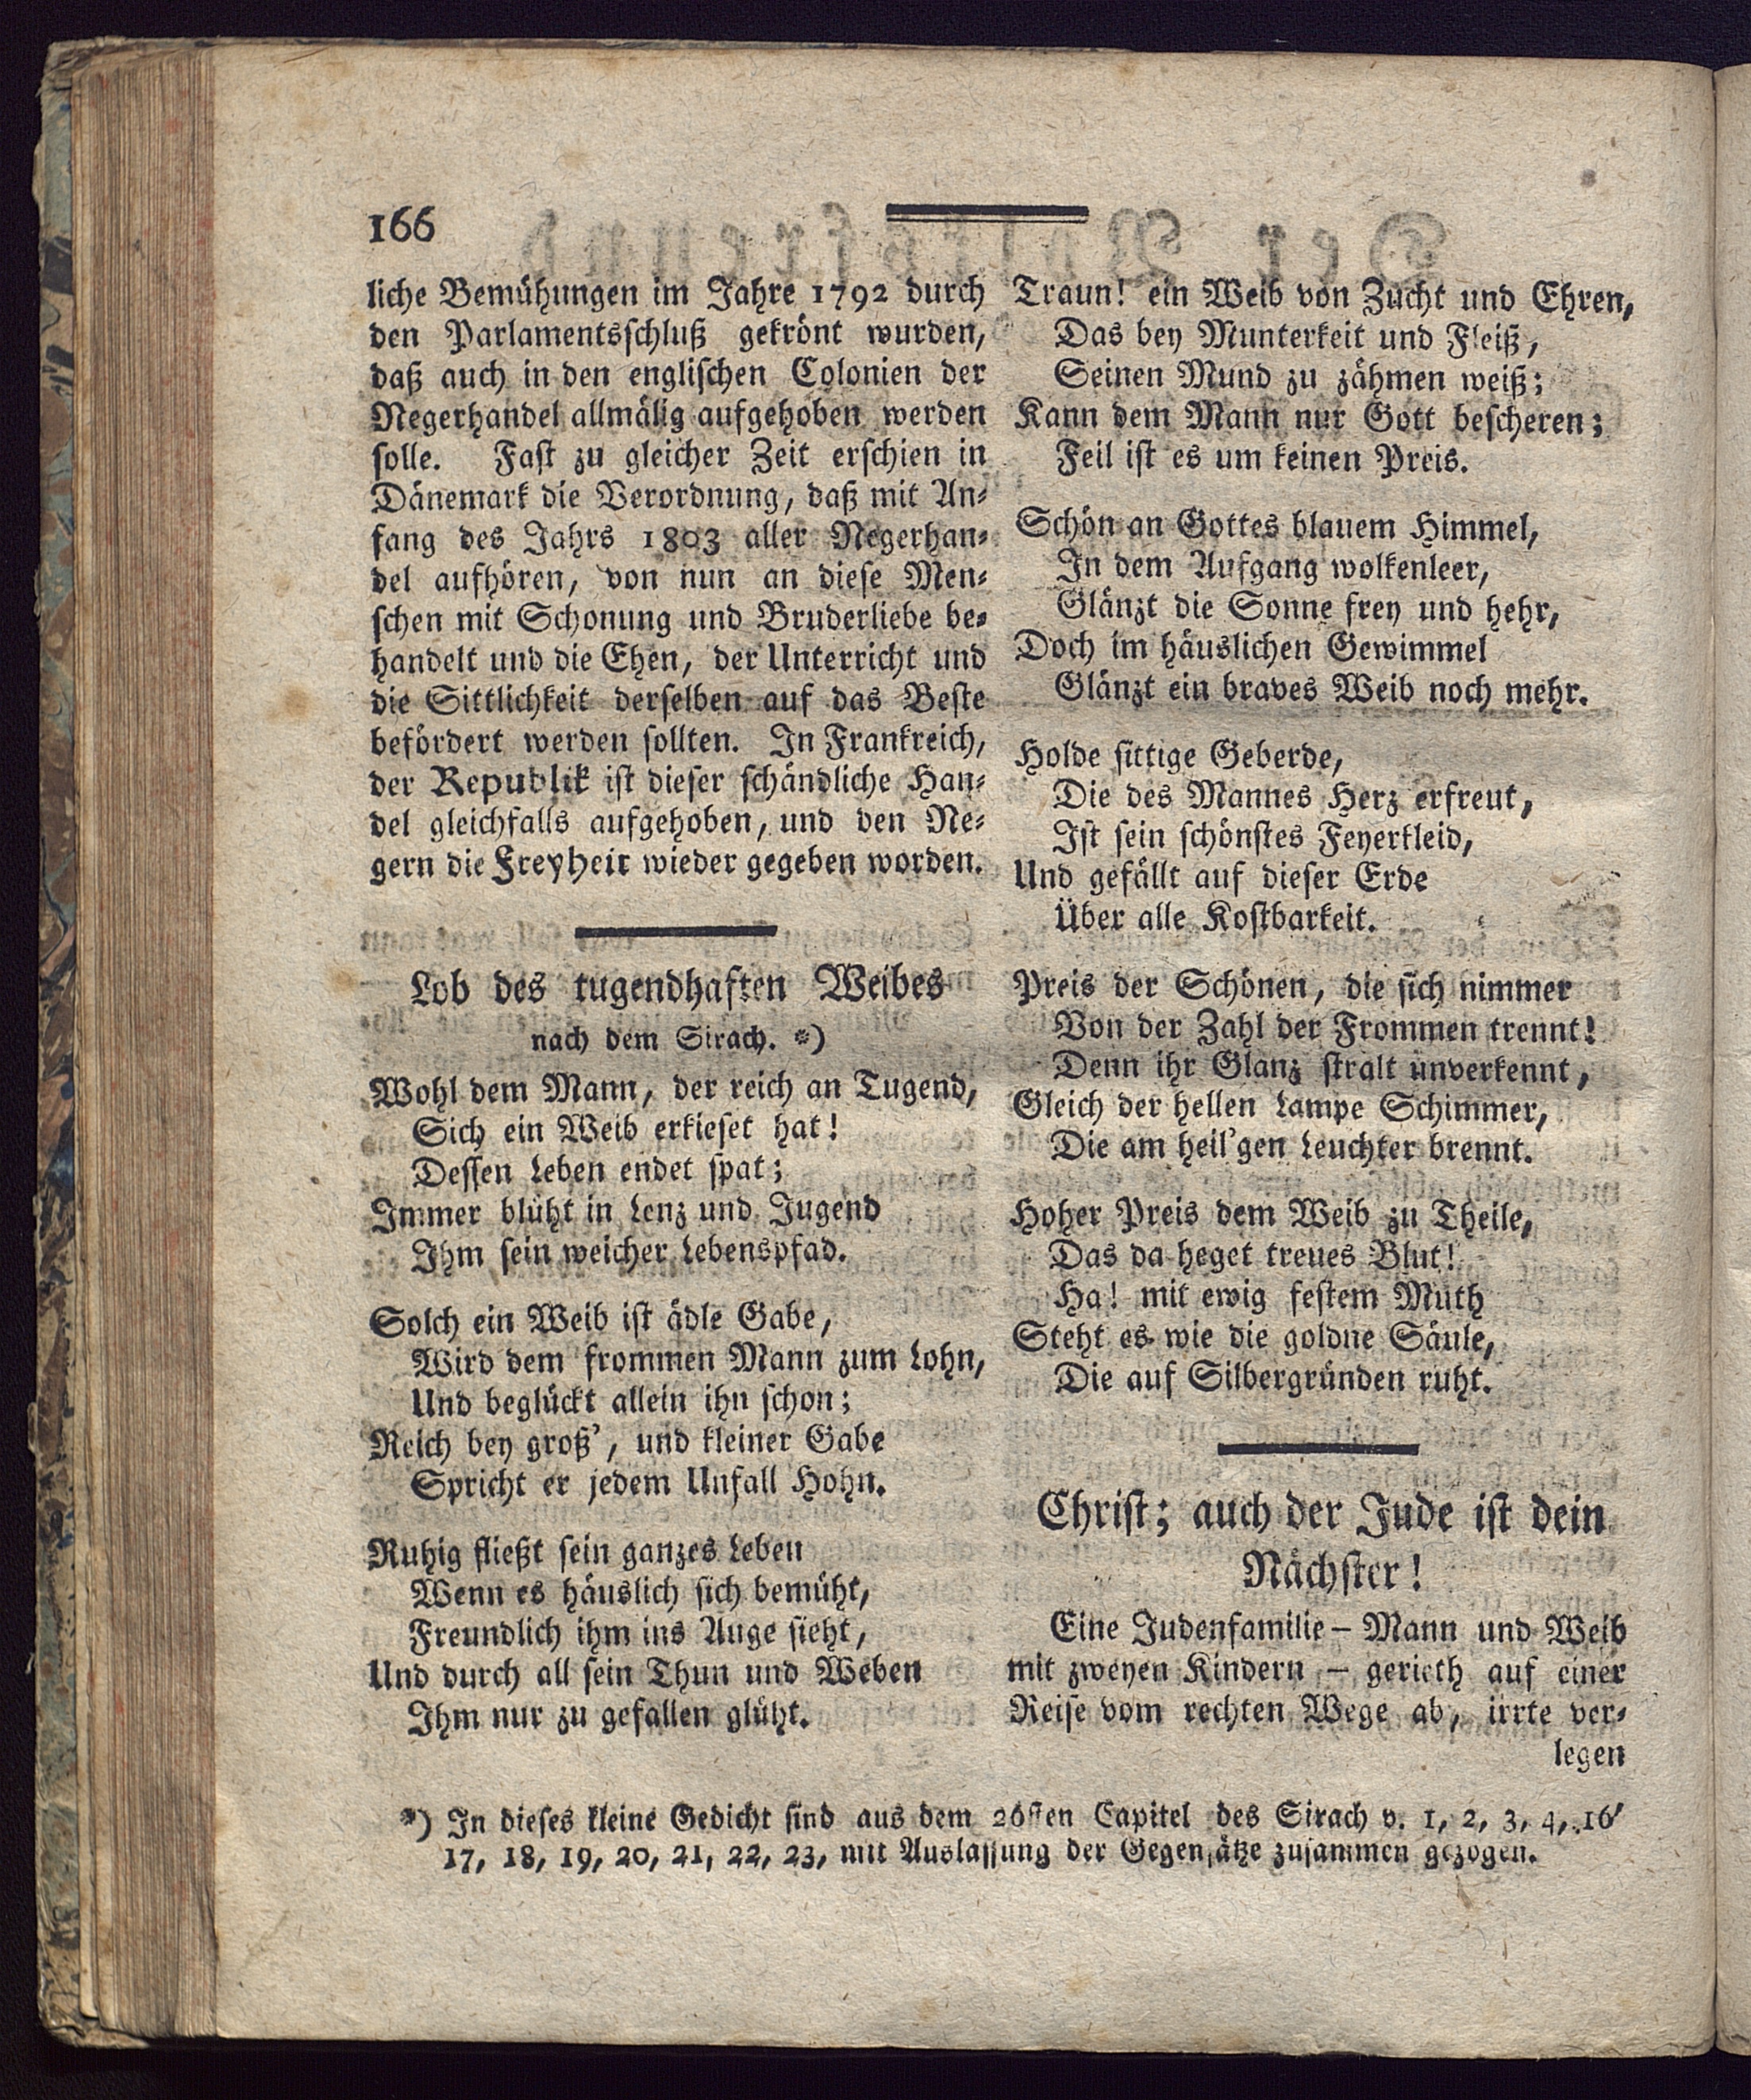 166
liche Bemühungen im Jahre 1792 durch
den Parlamentsschluß gekrönt wurden,
daß auch in den englischen Colonien der
Negerhandel allmälig aufgehoben werden
solle. Fast zu gleicher Zeit erschien in
Dänemark die Verordnung, daß mit An-
fang des Jahrs 1803 aller Negerhan-
del aufhören, von nun an diese Men-
schen mit Schonung und Bruderliebe be-
handelt und die Ehen, der Unterricht und
die Sittlichkeit derselben auf das Beste
befördert werden sollten. In Frankreich,
der Republik ist dieser schändliche Han-
del gleichfalls aufgehoben, und den Ne-
gern die Freyheit wieder gegeben worden.
Lob des tugendhaften Weibes
nach dem Sirach. *)
Wohl dem Mann, der reich an Tugend,
Sich ein Weib erkieset hat!
Dessen Leben endet spat;
Immer blüht in Lenz und Jugend
Ihm sein weicher Lebenspfad.
Solch ein Weib ist ädle Gabe,
Wird dem frommen Mann zum Lohn,
Und beglückt allein ihn schon;
Reich bey groß', und kleiner Gabe
Spricht er jedem Unfall Hohn.
Ruhig fließt sein ganzes Leben
Wenn es häuslich sich bemüht,
Freundlich ihm ins Auge sieht,
Und durch all sein Thun und Weben
Ihm nur zu gefallen glüht.
Traun! ein Weib von Zucht und Ehren,
Das bey Munterkeit und Fleiß,
Seinen Mund zu zähmen weiß;
Kann dem Mann nur Gott bescheren;
Feil ist es um keinen Preis.
Schön an Gottes blauem Himmel,
In dem Aufgang wolkenleer,
Glänzt die Sonne frey und hehr,
Doch im häuslichen Gewimmel
Glänzt ein braves Weib noch mehr.
Holde sittige Geberde,
Die des Mannes Herz erfreut,
Ist sein schönstes Feyerkleid,
Und gefällt auf dieser Erde
Über alle Kostbarkeit.
Preis der Schönen, die sich nimmer
Von der Zahl der Frommen trennt!
Denn ihr Glanz stralt unverkennt,
Gleich der hellen Lampe Schimmer,
Die am heil'gen Leuchter brennt.
Hoher Preis dem Weib zu Theile,
Das da heget treues Blut!
Ha! mit ewig festem Muth
Steht es wie die goldne Säule,
Die auf Silbergründen ruht.
Christ; auch der Jude ist dein
Nächster!
Eine Judenfamilie — Mann und Weib
mit zweyen Kindern — gerieth auf einer
Reise vom rechten Wege ab, irrte ver-
legen
*) In dieses kleine Gedicht sind aus dem 26sten Capitel des Sirach v. 1, 2, 3, 4, 16
17, 18, 19, 20, 21, 22, 23, mit Auslassung der Gegensätze zusammen gezogen.